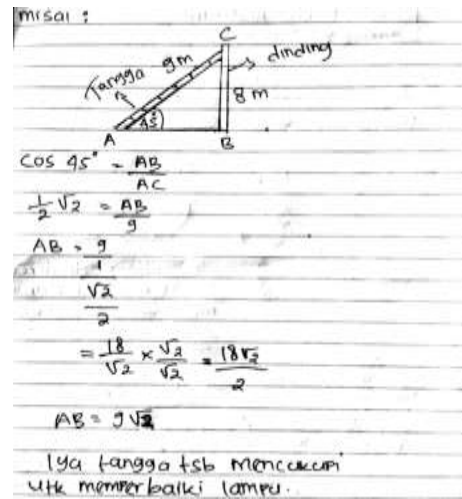 misal :
C
Tangga 9m
dinding
8 m
45°
A
B
cos 45° = AB/AC
1/2 √2 = AB/9
AB = 9/1 / √2/2
= 18/√2 × √2/√2 = 18√2/2
AB = 9√2
Iya tangga tsb mencukupi
utk memperbaiki lampu.